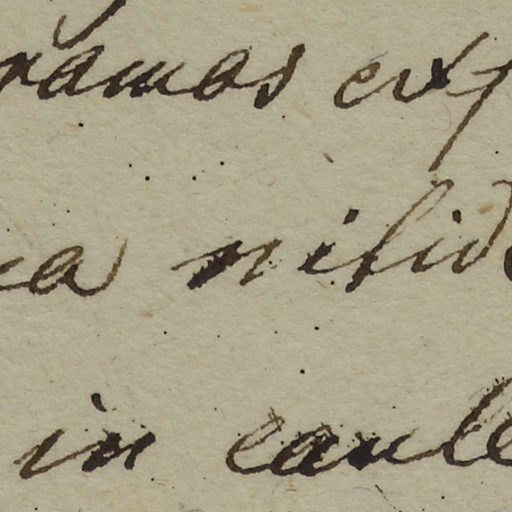 ramos exp
ea nitid
in caule